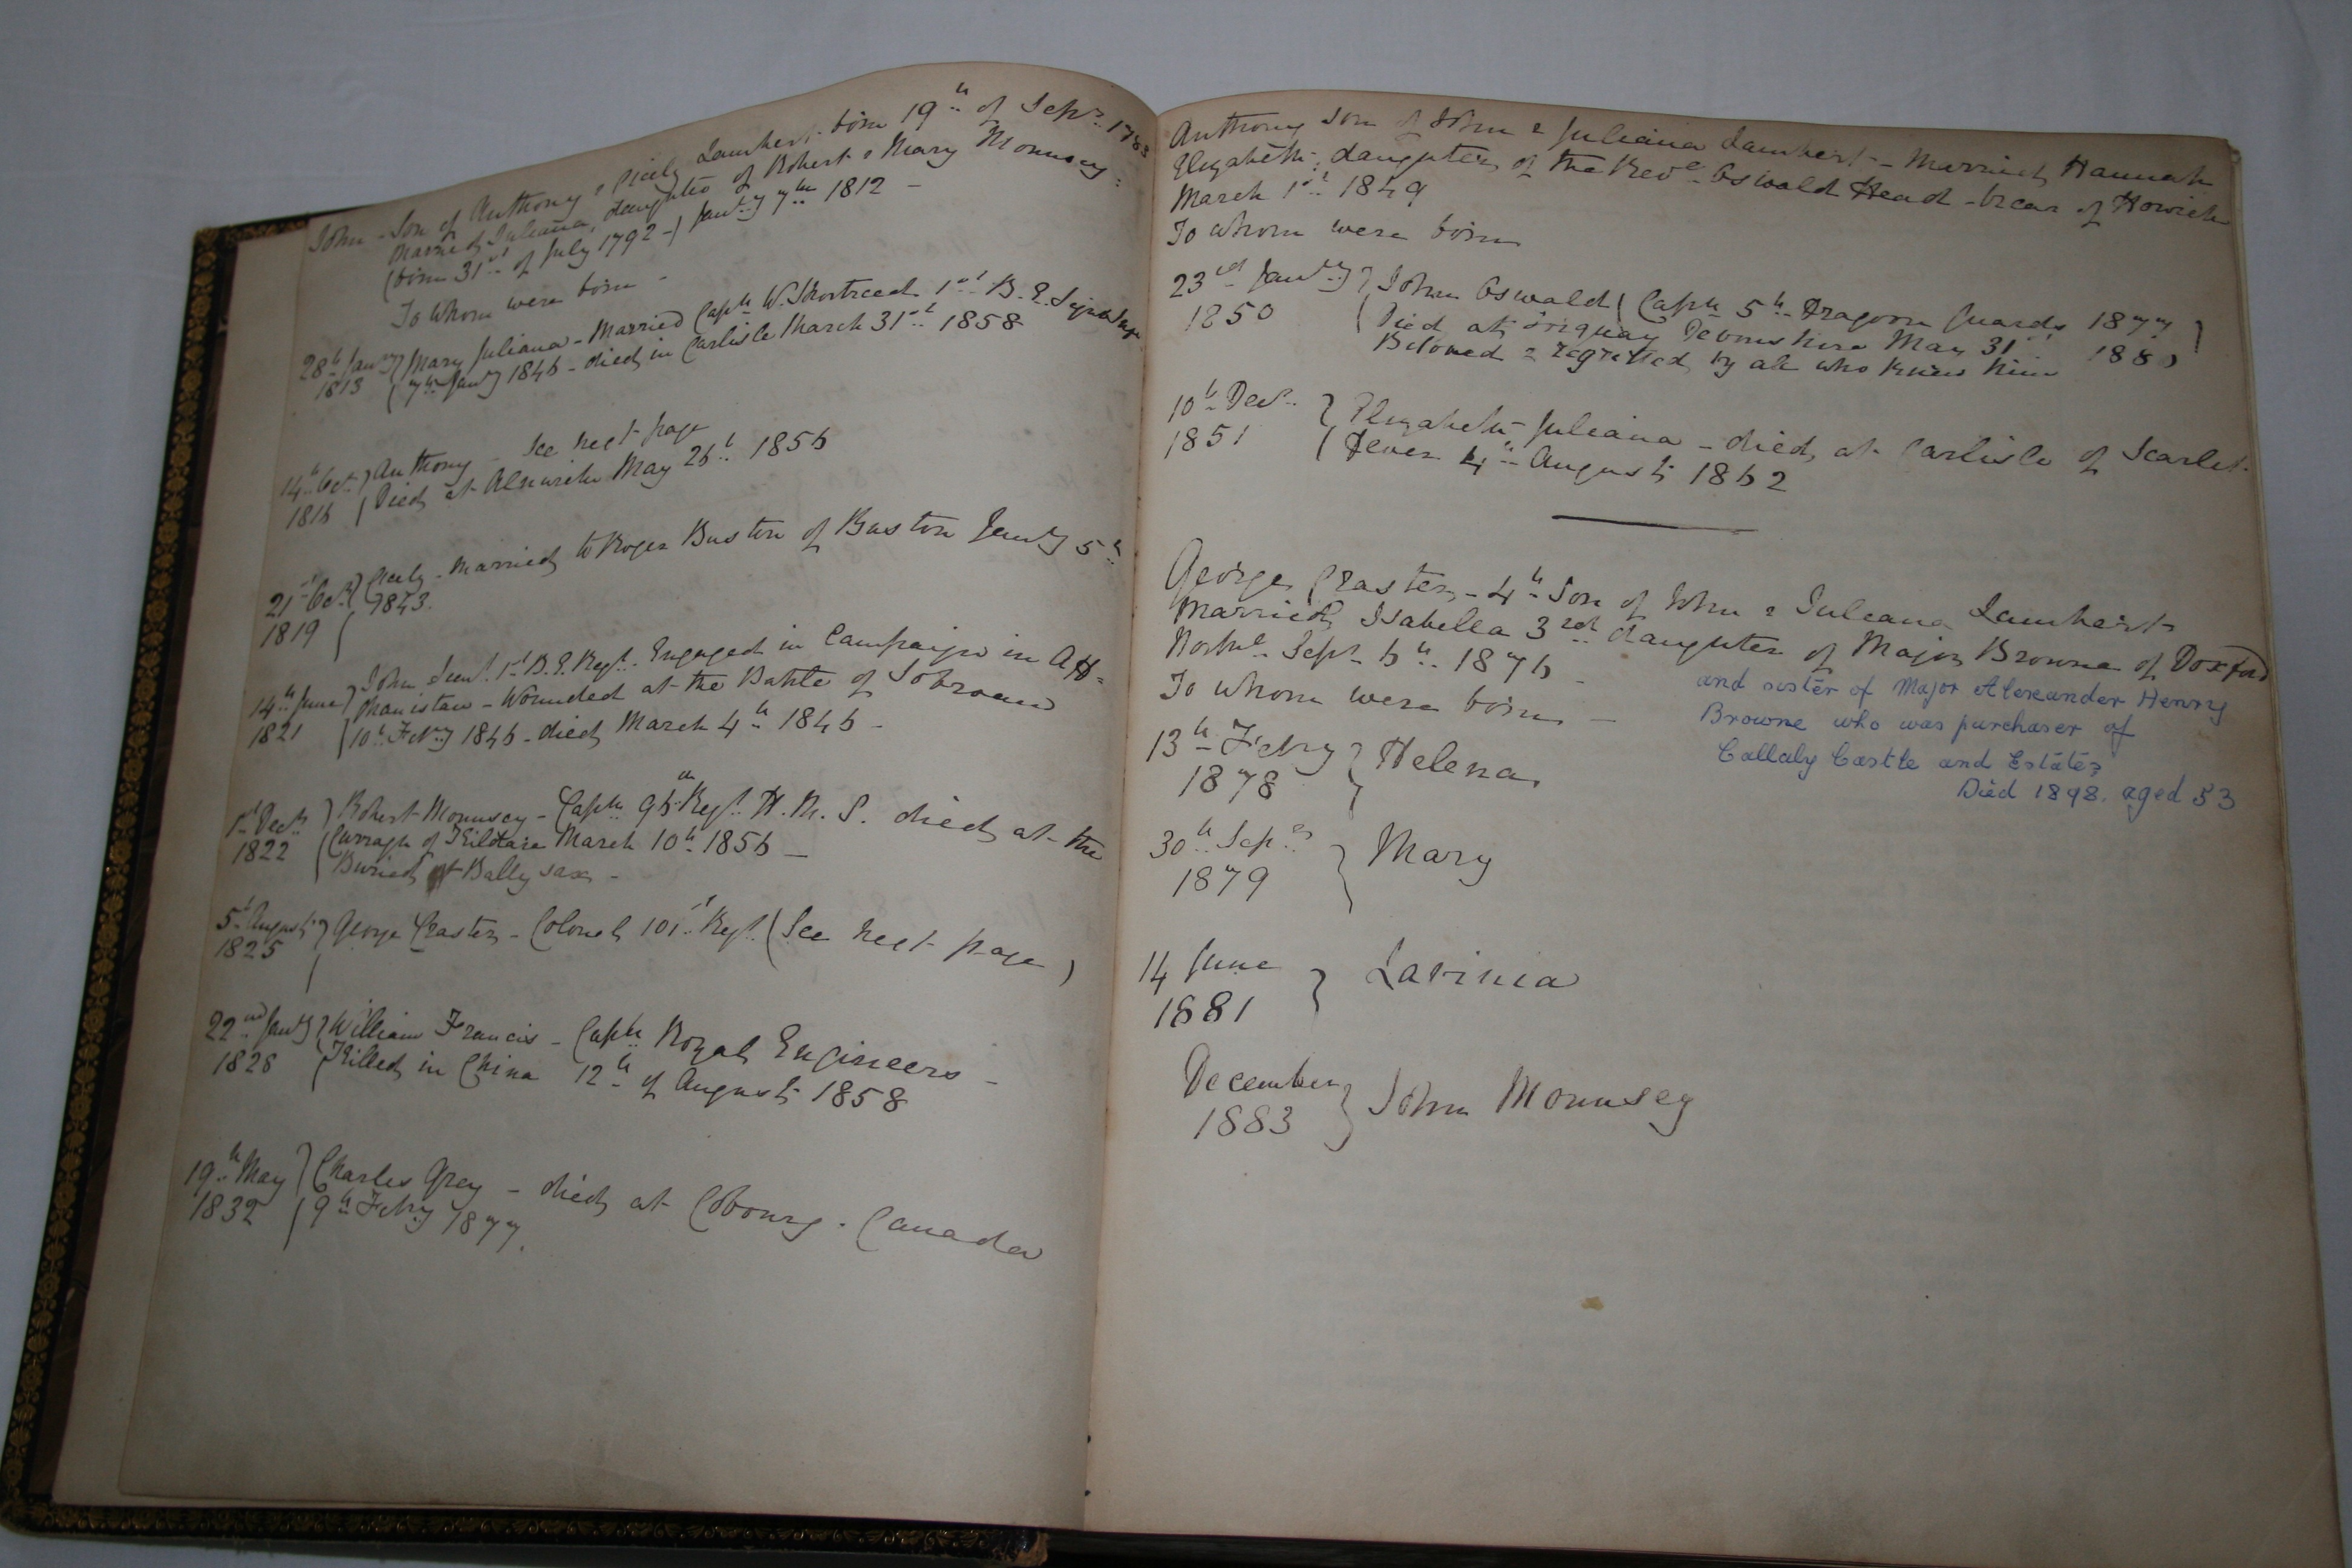 John - Son of Anthony & Cicely Lambert born 19th of Sepr. 1783
Married Juliana, daughter of Robert & Mary Mounsey =
(born 31st of July 1792 -) Jany 7th 1812 -
To whom were born -
28th Jany } Mary Juliana - Married Captn W. Shortreed 1st B. E.
1813 ( 7th Jany 1846 - died in Carlisle March 31st 1858
14th Oct } Anthony - See next page
1816 ( Died at Alnwick May 26th 1856
21st Octr } Cicely - Married to Roger Buston of Buston Jany 5th
1819 ( 1843.
14th June } John Lieut. 1st B. E. Regt. Engaged in Campaign in Aff=
1821 ( ghanistan - Wounded at the Battle of Sobraon
10th Febry 1846 - died March 4th 1846 -
1st Decr } Robert Mounsey - Captn 96th Regt. H. M. S. died at the
1822 ( Curragh of Kildare March 10th 1856 -
Buried at Ballysax -
5th August } George Craster - Colonel 101st Regt. (See next page)
1825 (
22nd Jany } William Francis - Captn Royal Engineers -
1828 ( Killed in China 12th of August 1858
19th May } Charles Grey - died at Cobourg - Canada
1832 ( 9th Febry 1877.
Anthony son of John & Juliana Lambert - Married Hannah
Elizabeth, daughter of the Revd. Oswald Head - Vicar of Howick
March 1st 1849
To whom were born
23rd Jany } John Oswald ( Captn 5th Dragoon Guards 1877 )
1850 ( Died at Torquay Devonshire May 31st 1880
Beloved & regretted by all who knew him
10th Decr. } Elizabeth Juliana - died at Carlisle of Scarlet
1851 ( Fever 4th August 1862
George Craster - 4th Son of John & Juliana Lambert
Married Isabella 3rd daughter of Major Browne of Doxford
Northd. Sept 6th 1876 -
To whom were born -
and sister of Major Alexander Henry
Browne who was purchaser of
Callaly Castle and Estates
Died 1898. aged 53
13th Febry } Helena
1878
30th Sepr } Mary
1879
14 June } Lavinia
1881
December } John Mounsey
1883